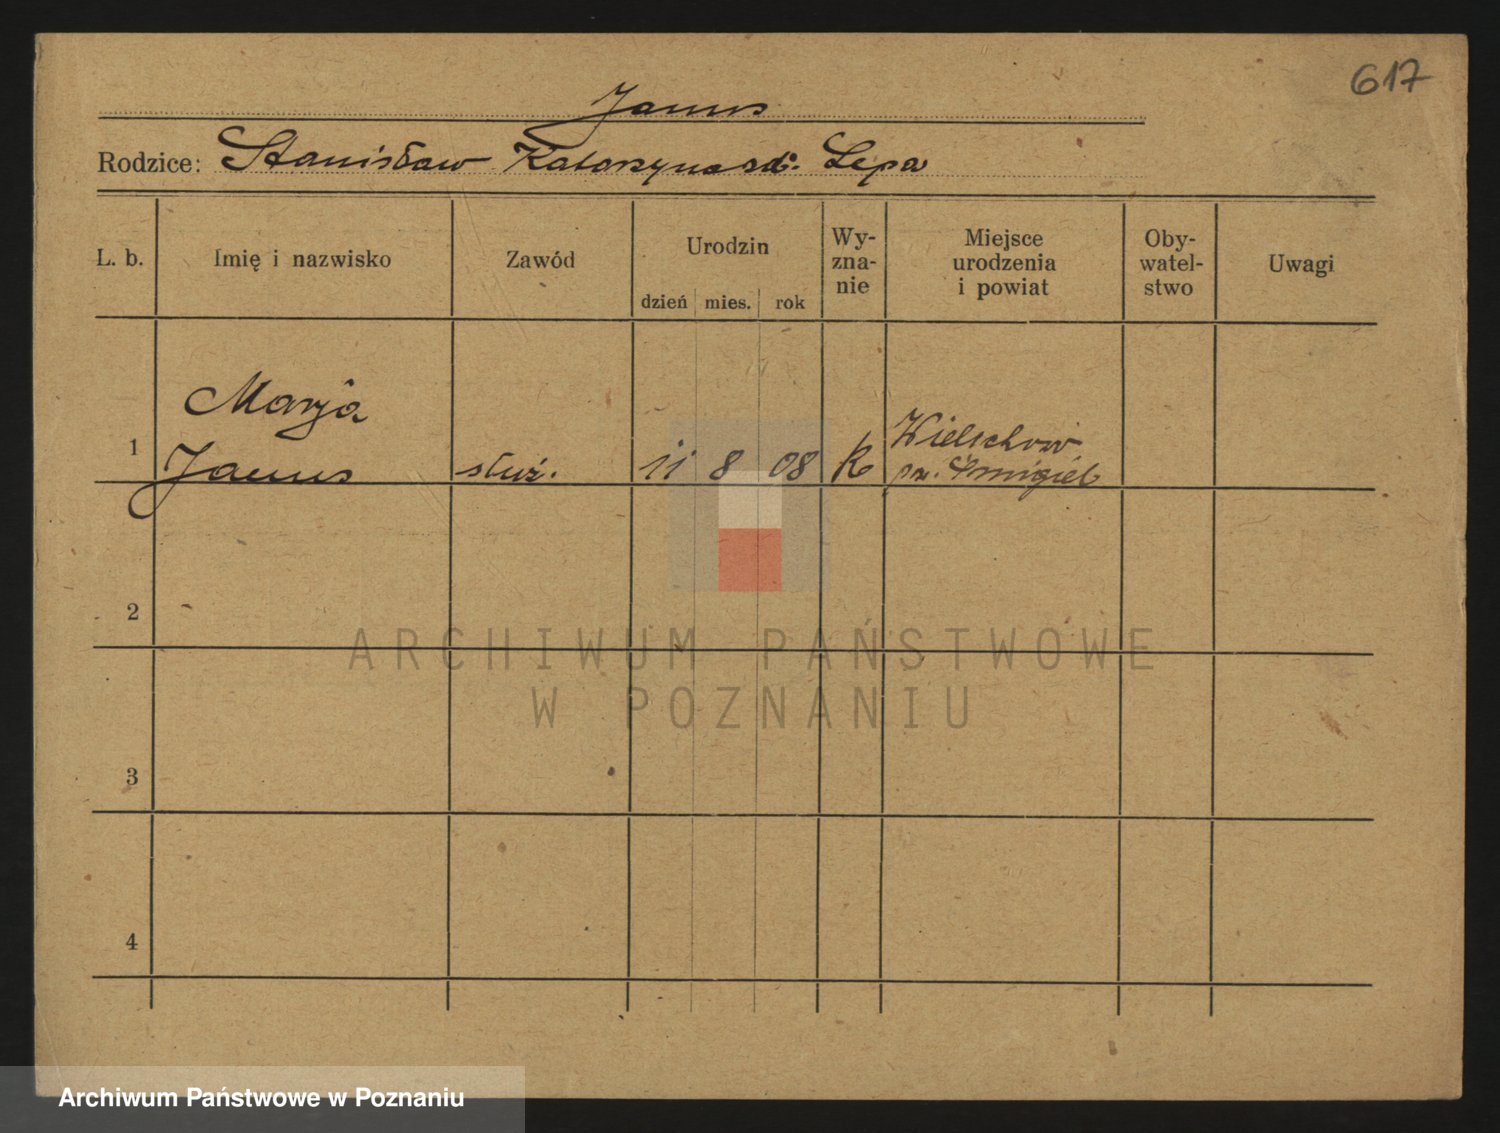 617
Janus
Rodzice: Stanisław Katarzyna zd. Lepa
L. b. Imię i nazwisko Zawód Urodzin dzień mies. rok Wy-zna-nie Miejsce urodzenia i powiat Oby-watel-stwo Uwagi
Marja
1 Janus służ. 11 8 08 K Wielichowo
pow. Śmigiel
2
ARCHIWUM PAŃSTWOWE
W POZNANIU
3
4
Archiwum Państwowe w Poznaniu